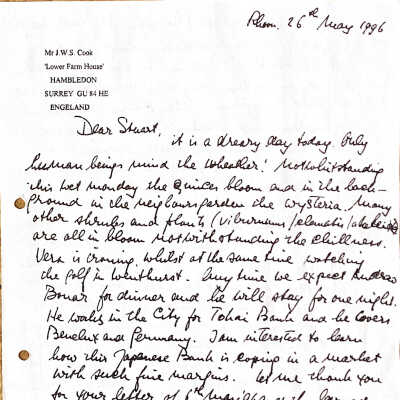 Rhon. 26th May 1996
Mr J.W.S. Cook
'Lower Farm House'
HAMBLEDON
SURREY GU 84 HE
ENGELAND
Dear Stuart,
it is a dreary day today. Only
human beings mind the wheather! Nothwithstanding
this wet monday the Quinces bloom and in the back-
ground in the neighbours garden the wysteria. Many
other shrubs and plants (viburnums/clematis/
are all in bloom notwithstanding the chillness.
Vera is ironing whilst at the same time watching
the golf in Wenthurst. Any time we expect Andreas
Bonar for dinner and he will stay for one night.
He works in the City for Tokai Bank and he covers
Benelux and Germany. I am interested to learn
how this Japanese Bank is coping in a market
with such fine margins. Let me thank you
for your letter of 6th